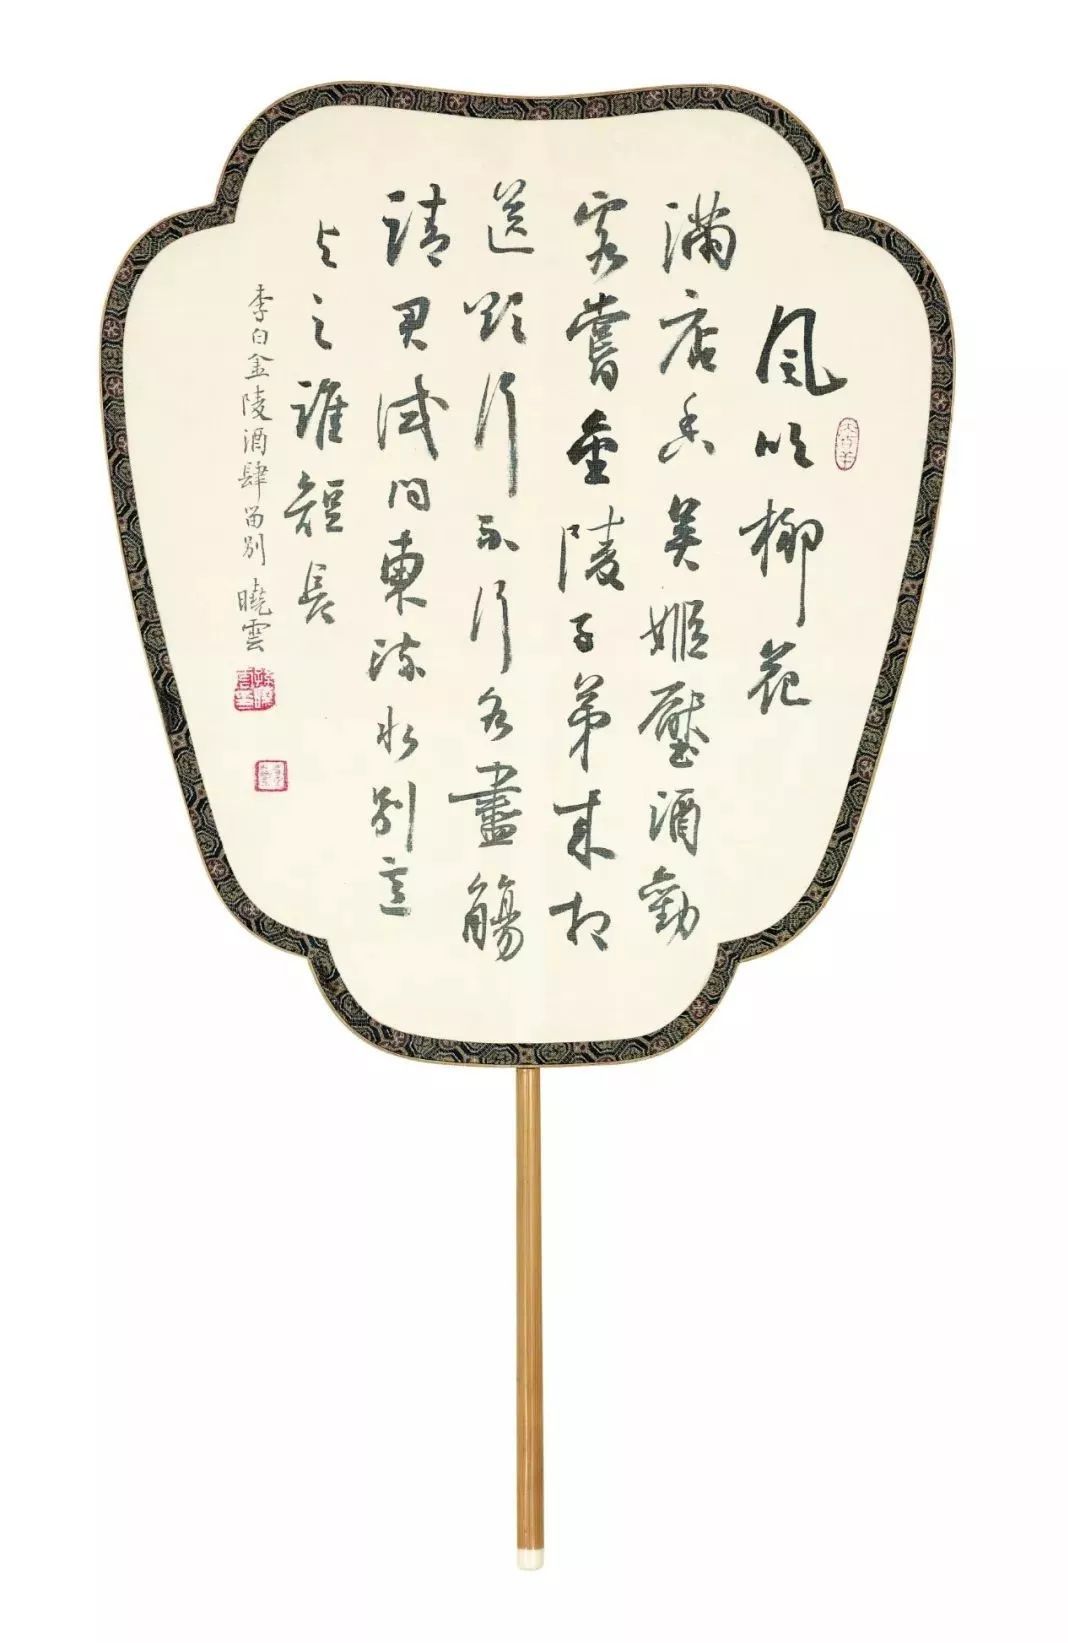 風吹柳花
滿店香吳姬壓酒勸
客嘗金陵子弟來相
送欲行不行各盡觴
請君試問東流水別意
與之誰短長
李白金陵酒肆留別 曉雲